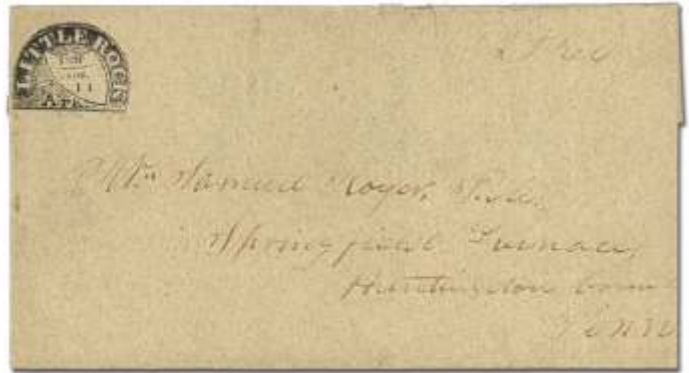 LITTLE ROCK
11
Ark.
Free
Samuel Royer,
Springfield Furnace,
Huntingdon
Penn